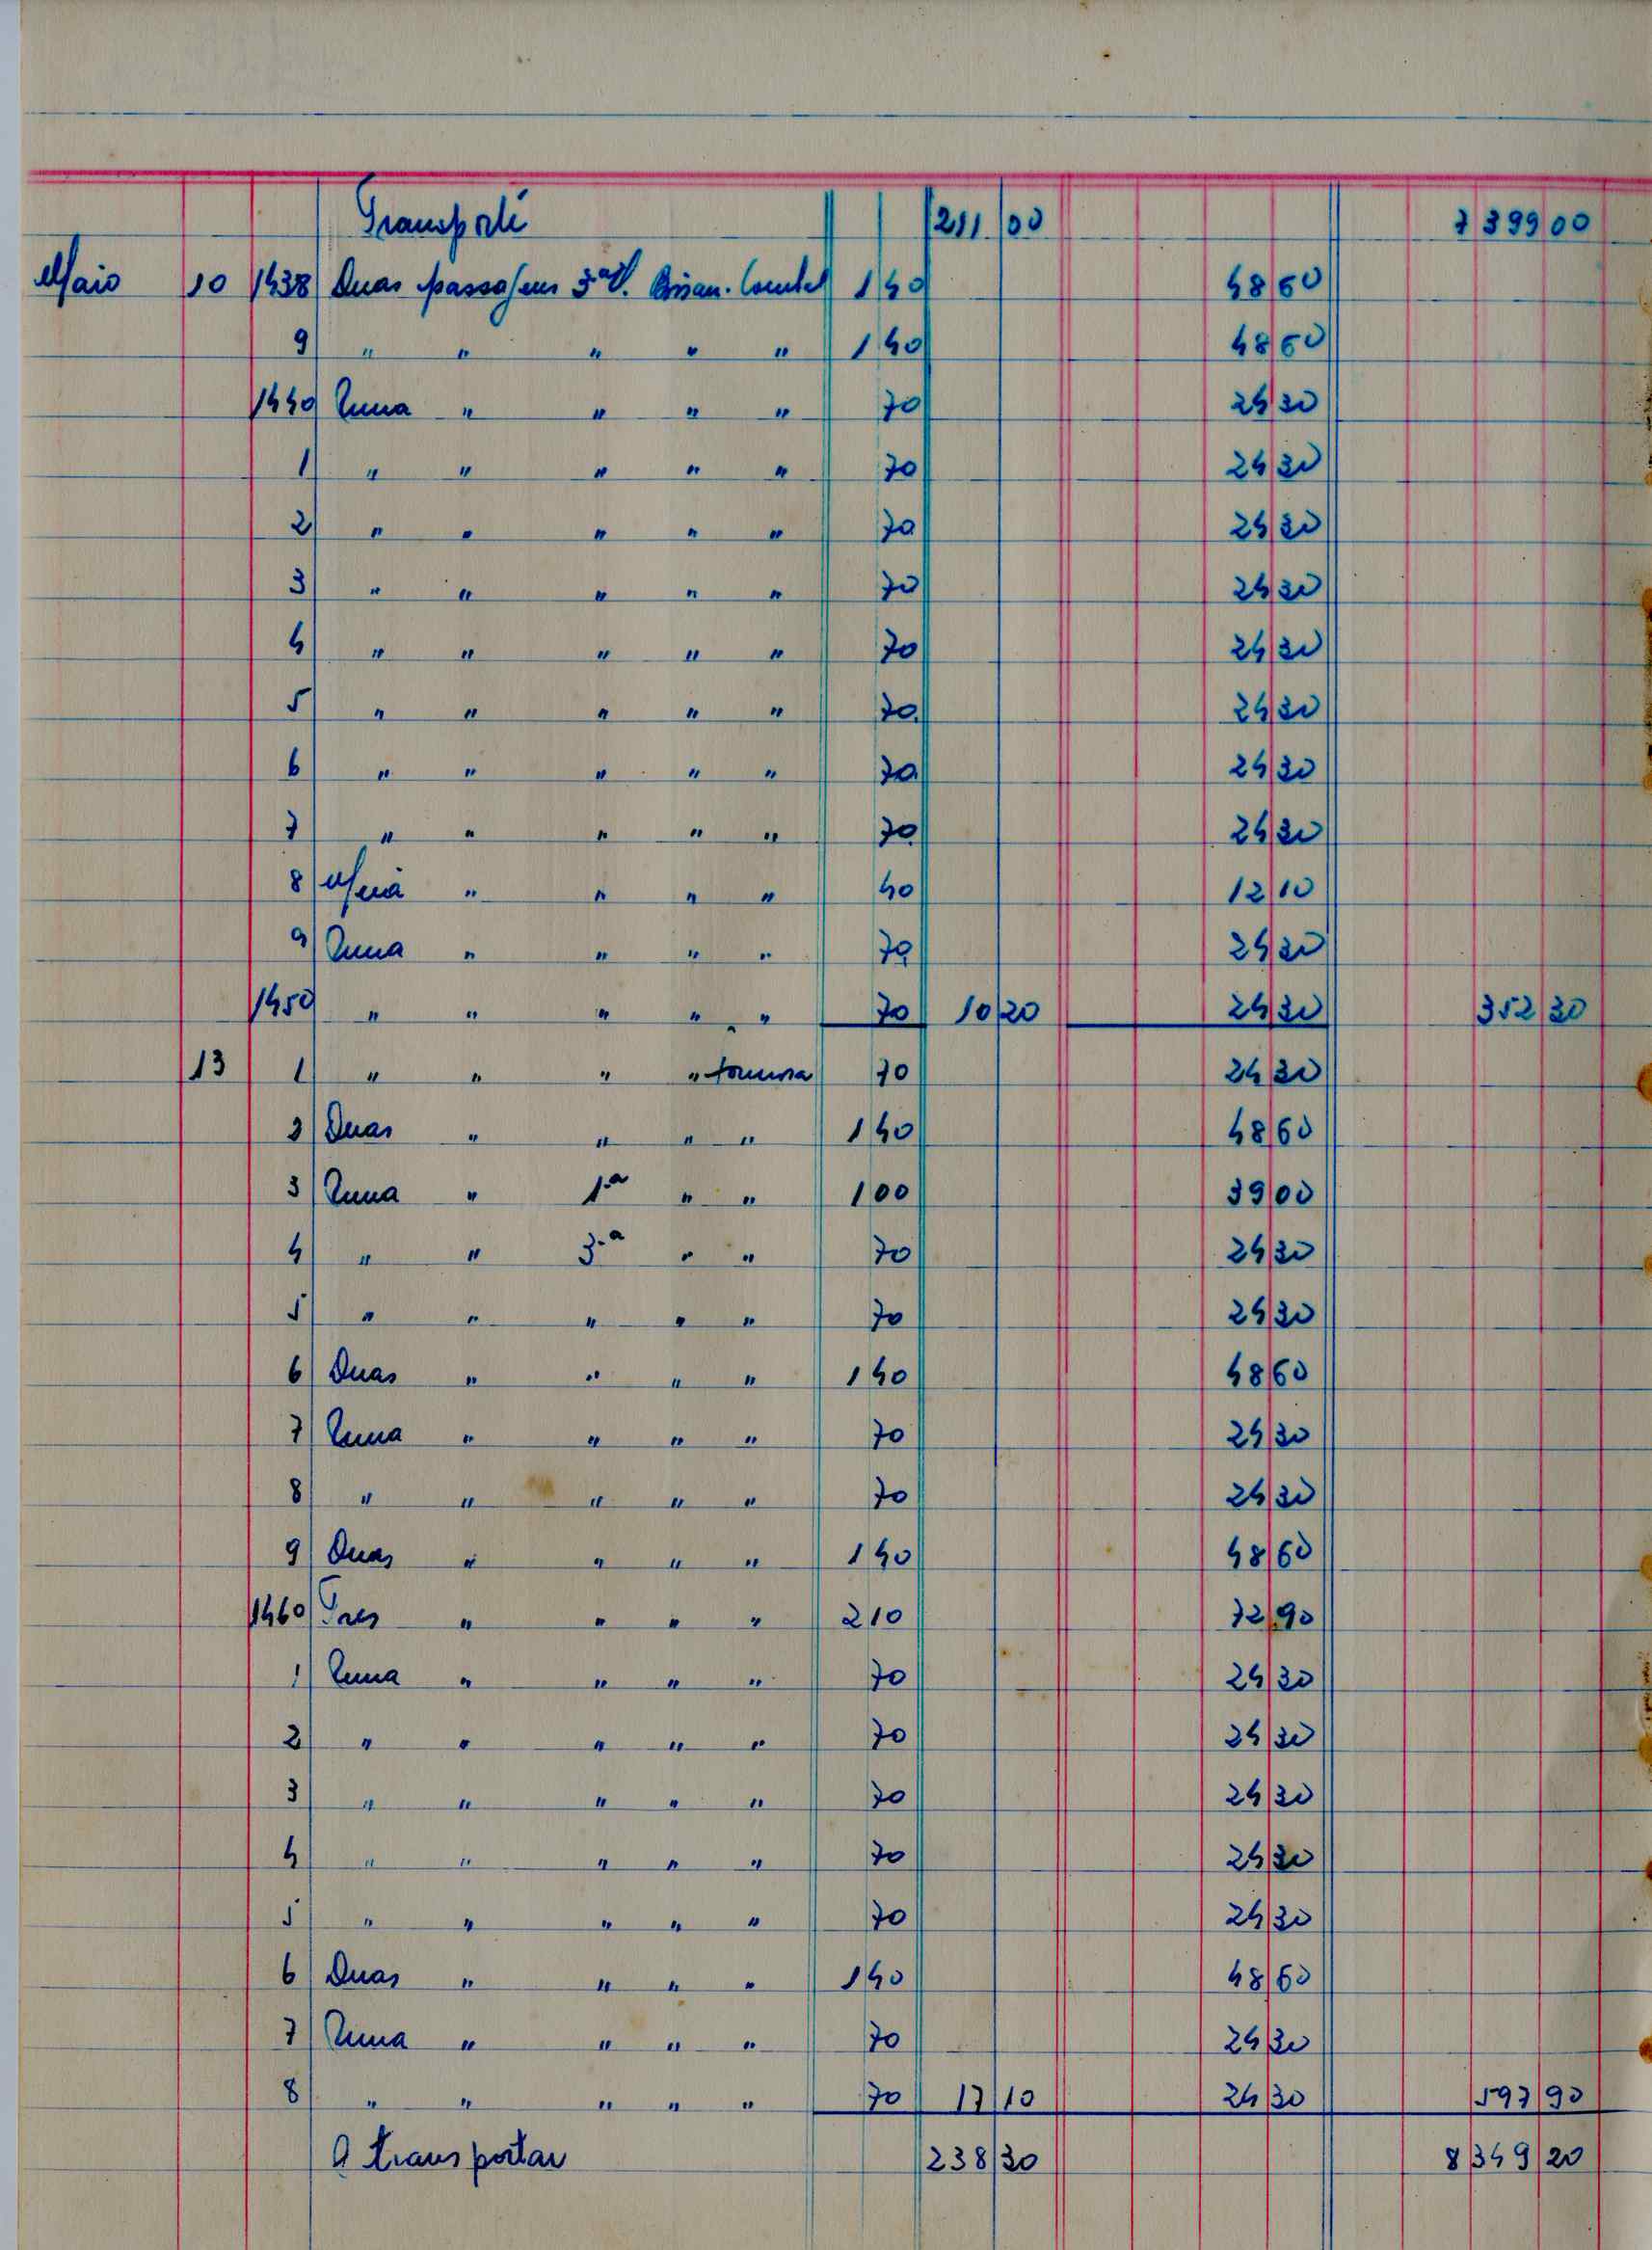 Transporte 211 00 7 399 00
Maio 10 1438 Duas passagens 3ª V. Bissau. 1 40 48 60
9 " " " " " 1 40 48 60
1440 Uma " " " " 70 24 30
1 " " " " " 70 24 30
2 " " " " " 70 24 30
3 " " " " " 70 24 30
4 " " " " " 70 24 30
5 " " " " " 70 24 30
6 " " " " " 70 24 30
7 " " " " " 70 24 30
8 Meia " " " " 40 12 10
9 Uma " " " " 70 24 30
1450 " " " " " 70 10 20 24 30 352 30
13 1 " " " " 70 24 30
2 Duas " " " " 1 40 48 60
3 Uma " 1ª " " 1 00 39 00
4 " " 3ª " " 70 24 30
5 " " " " " 70 24 30
6 Duas " " " " 1 40 48 60
7 Uma " " " " 70 24 30
8 " " " " " 70 24 30
9 Duas " " " " 1 40 48 60
1460 Tres " " " " 2 10 72 90
1 Uma " " " " 70 24 30
2 " " " " " 70 24 30
3 " " " " " 70 24 30
4 " " " " " 70 24 30
5 " " " " " 70 24 30
6 Duas " " " " 1 40 48 60
7 Uma " " " " 70 24 30
8 " " " " " 70 17 10 24 30 597 90
A transportar 238 30 8 349 20